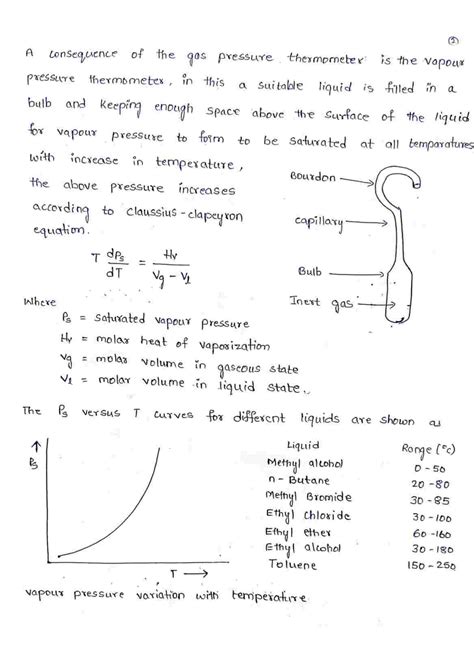 (2)
A consequence of the gas pressure thermometer is the vapour
pressure thermometer, in this a suitable liquid is filled in a
bulb and keeping enough space above the surface of the liquid
for vapour pressure to form to be saturated at all temparatures
with increase in temperature,
the above pressure increases
according to claussius-clapeyron
equation.
Bourdon
capillary
Bulb
Inert gas
T dPs/dT = Hv/(Vg - Vl)
Where
Ps = saturated vapour pressure
Hv = molar heat of vaporization
Vg = molar volume in gaseous state
Vl = molar volume in liquid state.
The Ps versus T curves for different liquids are shown as
Ps
T
Liquid Range (°c)
Methyl alcohol 0-50
n-Butane 20-80
Methyl Bromide 30-85
Ethyl chloride 30-100
Ethyl ether 60-160
Ethyl alcohol 30-180
Toluene 150-250
vapour pressure variation with temperature